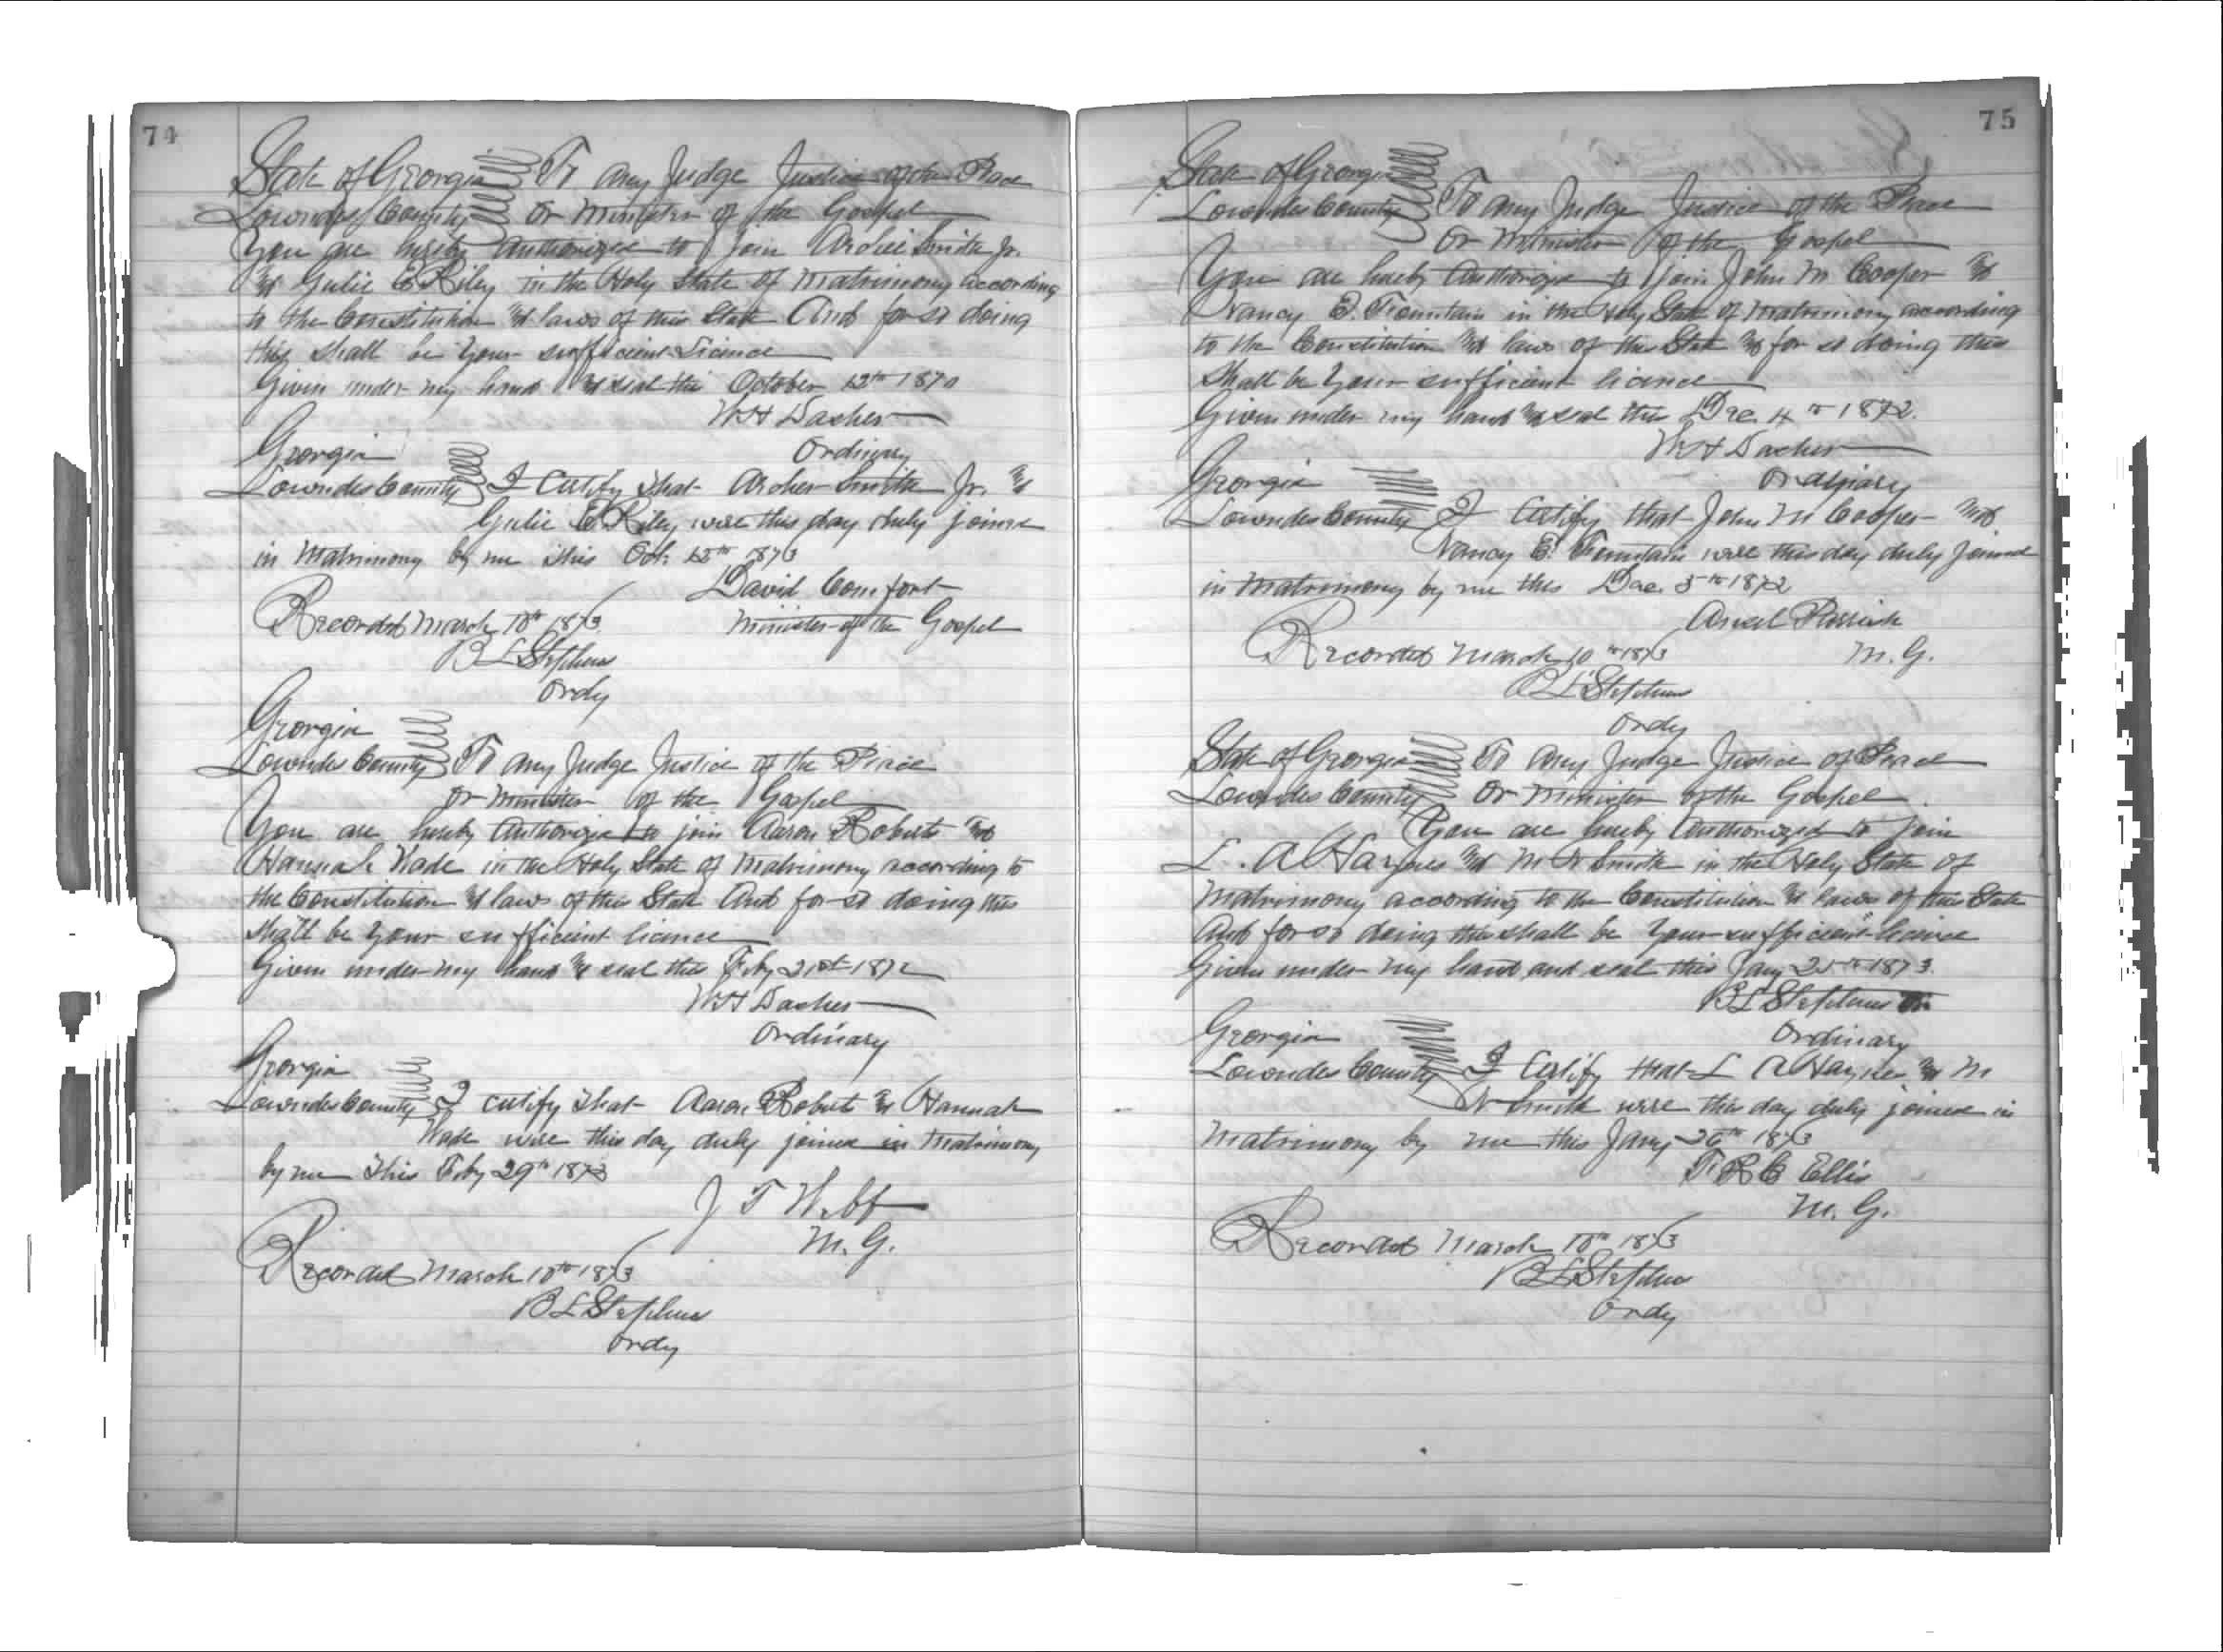 74
State of Georgia To any Judge Justice of the Peace
Lowndes County or Minister of the Gospel
You are hereby authorized to join Archie Smith Jr.
& Julie E Riley in the Holy State of Matrimony according
to the Constitution & laws of this State And for so doing
this shall be your sufficient License
Given under my hand & seal this October 12th 1870
W H Dasher
Ordinary
Georgia
Lowndes County I Certify that Archer Smith Jr. &
Julie E Riley were this day duly joined
in Matrimony by me this Oct. 12th 1873
David Comfort
Minister of the Gospel
Recorded March 10th 1873
B L Stephens
Ordy
Georgia
Lowndes County To any Judge Justice of the Peace
or Minister of the Gospel
You are hereby Authorize to join Aaron Roberts &
Hannah Wade in the Holy State of Matrimony according to
the Constitution & laws of this State And for so doing this
shall be your sufficient licence
Given under my hand & seal this Feby 21st 1872
W H Dasher
Ordinary
Georgia
Lowndes County I certify that Aaron Roberts & Hannah
Wade were this day duly joined in Matrimony
by me this Feby 29th 1873
J T Webb
M. G.
Recorded March 10th 1873
B L Stephens
Ordy
75
State of Georgia
Lowndes County To any Judge Justice of the Peace
or Minister of the Gospel
You are hereby Authorize to join John M Cooper &
Nancy E. Fountain in the Holy State of Matrimony according
to the Constitution & laws of this State & for so doing this
shall be your sufficient licence
Given under my hand & seal this Dec. 4th 1872.
W H Dasher
Ordinary
Georgia
Lowndes County I Certify that John M Cooper &
Nancy E. Fountain were this day duly joined
in Matrimony by me this Dec. 5th 1872
M. G.
Recorded March 10th 1873
B L Stephens
Ordy
State of Georgia To any Judge Justice of Peace
Lowndes County or Minister of the Gospel
You are hereby Authorized to join
L. A Haynes & M N Smith in the Holy State of
Matrimony according to the Constitution & laws of this State
And for so doing this shall be your sufficient licence
Given under my hand and seal this Jany 25th 1873.
B L Stephens
Ordinary
Georgia
Lowndes County I Certify that L A Haynes & M
N Smith were this day duly joined in
Matrimony by me this Jany 26th 1873
T R C Ellis
M. G.
Recorded March 10th 1873
B L Stephens
Ordy